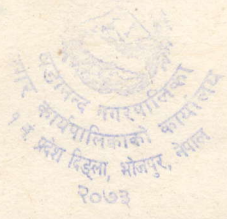 षडानन्द नगरपालिका
नगर कार्यपालिकाको कार्यालय
१ नं. प्रदेश दिङ्ला, भोजपुर, नेपाल
२०७३